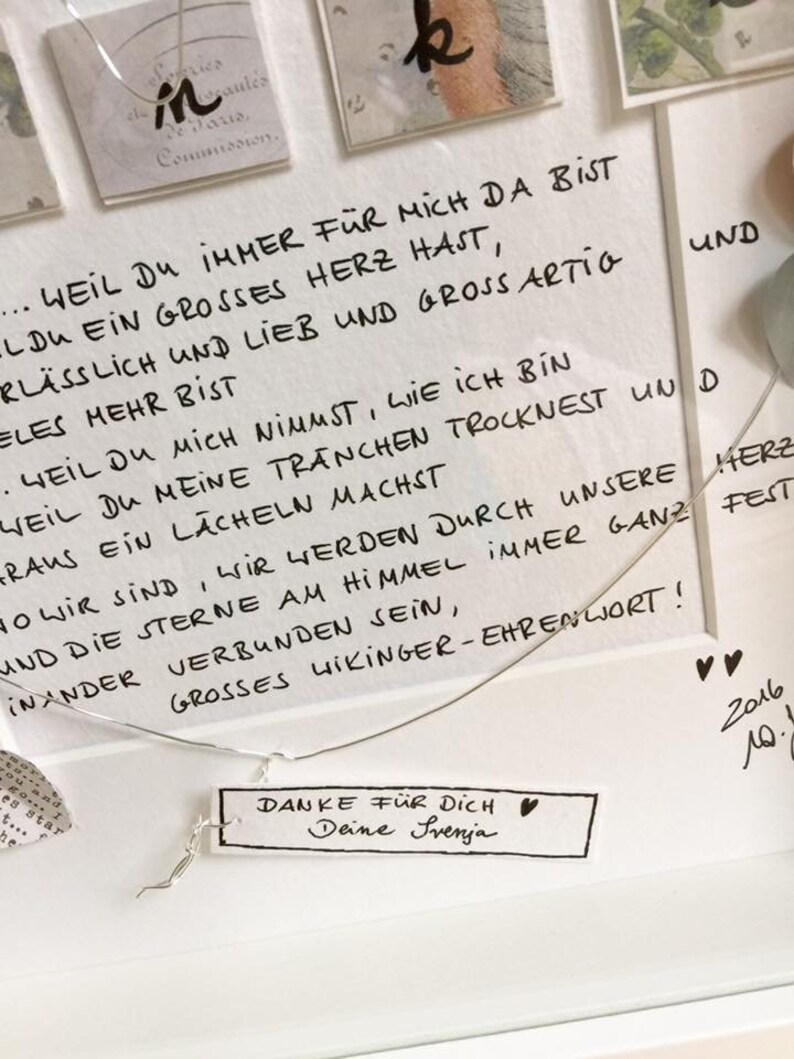 n
k
... WEIL DU IMMER FÜR MICH DA BIST UND
DU EIN GROSSES HERZ HAST,
RLÄSSLICH UND LIEB UND GROSSARTIG
ELES MEHR BIST
. WEIL DU MICH NIMMST, WIE ICH BIN
WEIL DU MEINE TRÄNCHEN TROCKNEST UND
RAUS EIN LÄCHELN MACHST
WO WIR SIND, WIR WERDEN DURCH UNSERE HERZ
UND DIE STERNE AM HIMMEL IMMER GANZ FEST
INANDER VERBUNDEN SEIN,
GROSSES WIKINGER-EHRENWORT!
2016
DANKE FÜR DICH
Deine Svenja